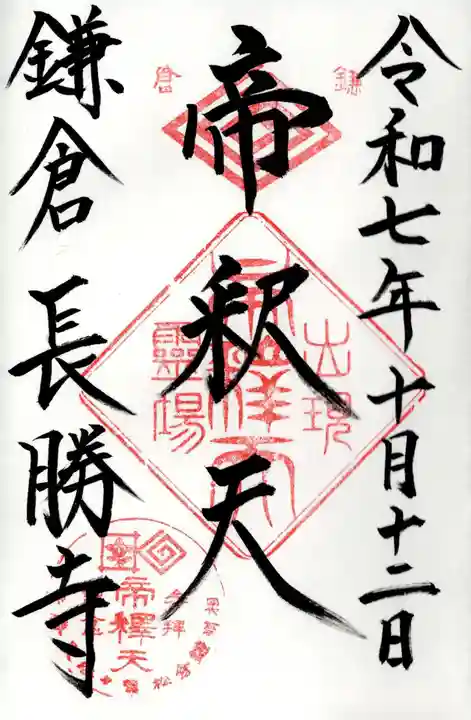 令和七年十月十二日
鎌倉
帝釈天
出現
帝釋天
靈場
鎌倉長勝寺
参拝
帝釋天